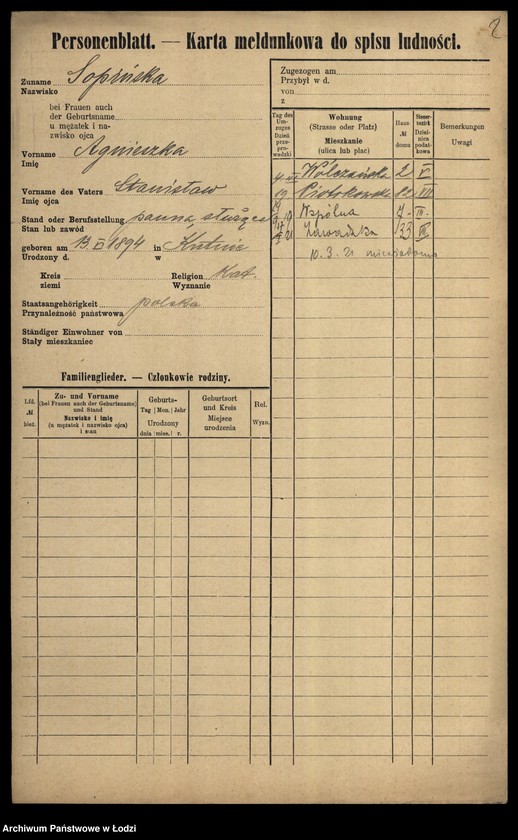 2
Personenblatt. — Karta meldunkowa do spisu ludności.
Zuname Sopińska
Nazwisko
bei Frauen auch
der Geburtsname
u mężatek i na-
zwisko ojca
Vorname Agnieszka
Imię
Vorname des Vaters Stanisław
Imię ojca
Stand oder Berufsstellung panna, służąca
Stan lub zawód
geboren am 13 XI 1894 in Kutnie
Urodzony d. w
Kreis Religion Kat.
ziemi Wyznanie
Staatsangehörigkeit polska
Przynależność państwowa
Ständiger Einwohner von
Stały mieszkaniec
Zugezogen am
Przybył w d.
von
z
Tag des Um-zuges Dzień prze-pro-wadzki
Wohnung (Strasse oder Platz) Mieszkanie (ulica lub plac)
Haus № domu
Steuer-bezirk Dziel-nica podat-kowa
Bemerkungen Uwagi
Wólczańska 2
19 Piotrkowska VII
Wspólna 7
Zawadzka 33
10. 3. 21 niewiadomo
Familienglieder. — Członkowie rodziny.
Lfd. № bież.
Zu- und Vorname (bei Frauen auch der Geburtsname) und Stand Nazwisko i imię (u mężatek i nazwisko ojca) i stan
Geburts- Tag Mon. Jahr Urodzony dnia mies. r.
Geburtsort und Kreis Miejsce urodzenia
Rel. Wyzn.
Archiwum Państwowe w Łodzi